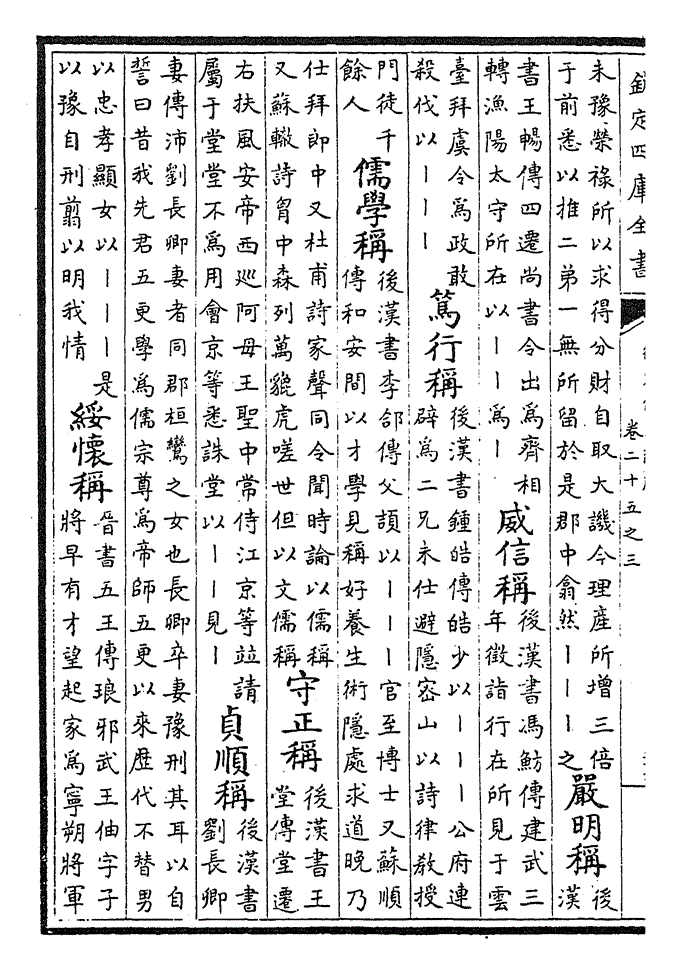 欽定四庫全書
卷二十五之三
未豫榮祿所以求得分財自取大譏今理産所增三倍
于前悉以推二弟一無所留於是郡中翕然丨丨丨之
嚴明稱
後
漢
書王暢傳四遷尚書令出為齊相
轉漁陽太守所在以丨丨為丨
威信稱
後漢書馮魴傳建武三
年徵詣行在所見于雲
臺拜虞令為政敢
殺伐以丨丨丨
篤行稱
後漢書鍾皓傳皓少以丨丨丨公府連
辟為二兄未仕避隱密山以詩律教授
門徒千
餘人
儒學稱
後漢書李郃傳父頡以丨丨丨官至博士又蘇順
傳和安間以才學見稱好養生術隱處求道晚乃
仕拜郎中又杜甫詩家聲同令聞時論以儒稱
又蘇轍詩胷中森列萬貔虎嗟世但以文儒稱
守正稱
後漢書王
堂傳堂遷
右扶風安帝西巡阿母王聖中常侍江京等竝請
屬于堂堂不為用會京等悉誅堂以丨丨見丨
貞順稱
後漢書
劉長卿
妻傳沛劉長卿妻者同郡桓鸞之女也長卿卒妻豫刑其耳以自
誓曰昔我先君五更學為儒宗尊為帝師五更以來歴代不替男
以忠孝顯女以丨丨丨是
以豫自刑翦以明我情
綏懷稱
晉書五王傳琅邪武王伷字子
將早有才望起家為寧朔將軍